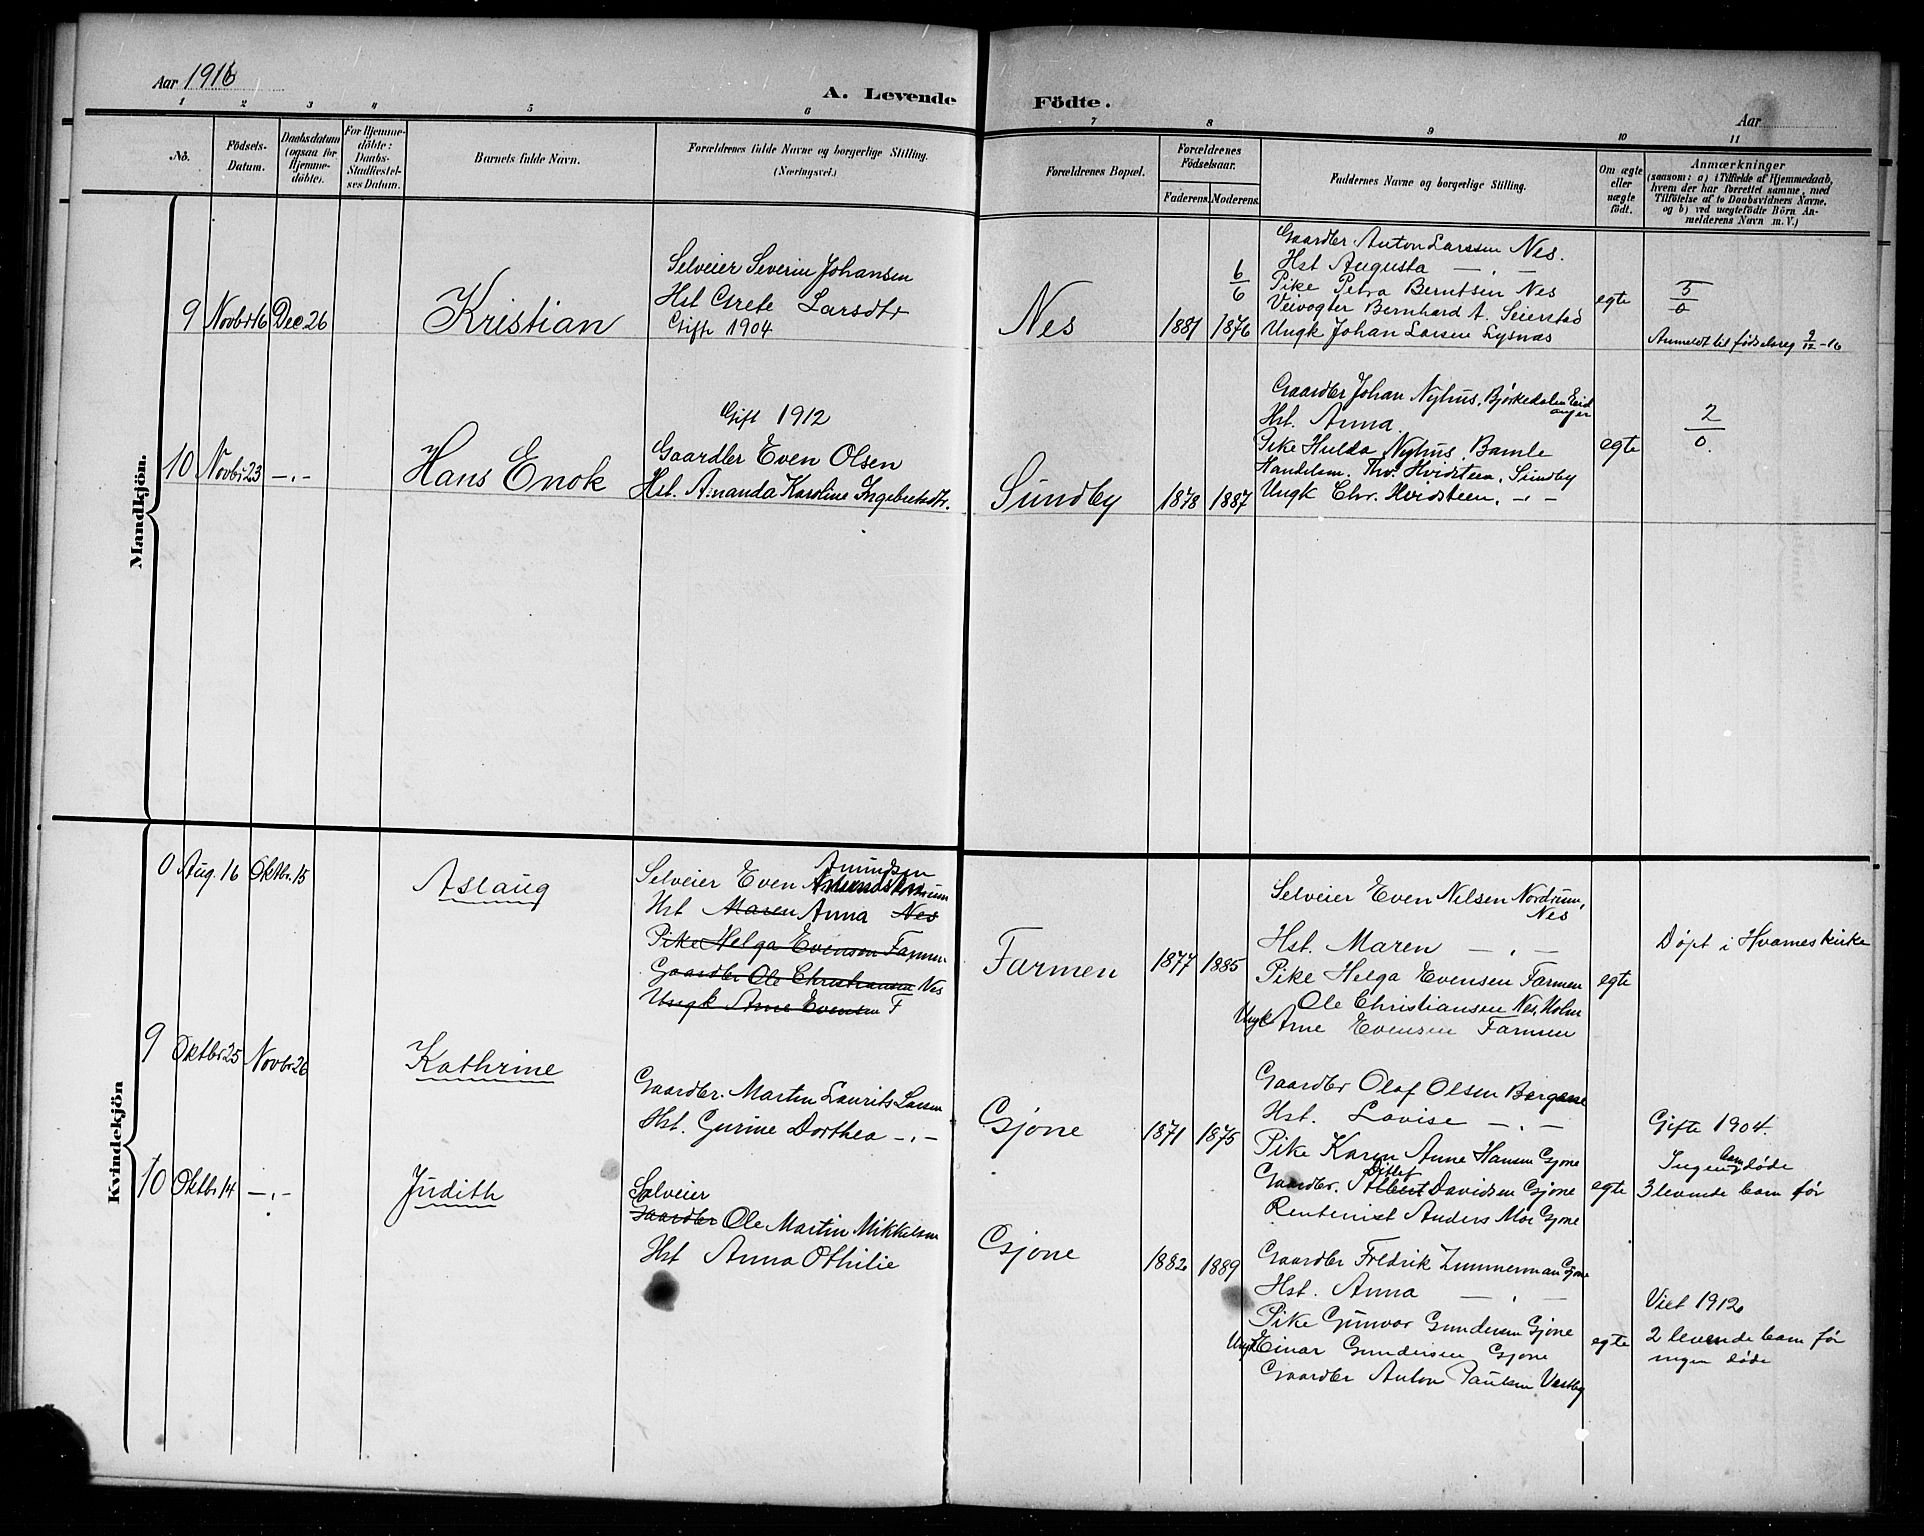 Aar 1916
A. Levende Födte.
Aar
1 2 3 4 5 6 7 8 9 10 11
No.
Födsels-
Datum.
Daabsdatum
(ogsaa for
Hjemme-
döbte).
For Hjemme-
döbte:
Daabs-
Stadfæstel-
ses Datum.
Barnets fulde Navn.
Forældrenes fulde Navne og borgerlige Stilling.
(Næringsvei.)
Forældrenes Bopæl.
Forældrenes
Födselsaar.
Faderens. Moderens.
Faddernes Navne og borgerlige Stilling.
Om ægte
eller
uægte
født.
Anmærkninger
(saasom: a) i Tilfælde af Hjemmedaab,
hvem der har forrettet samme, med
Tilföielse af to Daabsvidners Navne,
og b) ved uægtefödte Börn An-
melderens Navn m. V.)
Mandkjön.
9 Novbr 16 Dec 26
Kristian
Selveier Severin Johansen
Hst Grete Larsdtr
Gift 1904
Nes
1881
6/6
1876
Gaardbr Anton Larssen Nes.
Hst Augusta — " —
Pike Petra Berntsen Nes
Veivogter Bernhard A. Seierstad
Ungk Johan Larsen Lysnæs
egte
5/0
Anmeldt til fødselsreg 9/12 -16
10 Novbr 23 — " —
Hans Enok
Gift 1912
Gaardbr Even Olsen
Hst. Amanda Karoline Ingebretsdtr.
Sundby
1878 1887
Gaardbr Johan Nyhus, Bjørkedalen Eid
anger
Hst. Anna.
Pike Hulda Nyhus, Bamle
Handelsm. Thv. Hvidsteen, Sundby
Ungk Chr. Hvidsteen, — " —
egte
2/0.
Kvindekjön
0 Aug. 16 Oktbr. 15
Aslaug
Amundsen
Selveier Even
Hst Maren Anna Nes
Pike Helga Evensen Farmen
Gaardbr Ole Christiansen Nes
Ungk Arne Evensen F
Farmen
1877 1885
Selveier Even Nilsen Nordrum,
Nes
Hst. Maren — " —
Pike Helga Evensen Farmen
Ole Christiansen Nes, Holm
Ungk Arne Evensen Farmen
egte
Døpt i Hvarnes kirke
9 Oktbr 25 Novbr 26
Kathrine
Gaardbr. Martin Laurits Larsen
Hst. Gurine Dorthea — " —
Gjone
1871 1875
Gaardbr Olaf Olsen Bergane
Hst. Lovise — " —
Pike Karen Anne Hansen Gjone
Ditlef
Gaardbr. Albert Davidsen Gjone
Rentenist Anders Moe Gjone
egte
Gifte 1904.
Ingen barn døde
3 levende barn før
10 Oktbr. 14 — " —
Judith
Selveier
Gaardbr Ole Martin Mikkelsen
Hst Anna Othilie
Gjone
1882 1889
Gaardbr Fredrik Zimmerman Gjone
Hst. Anna — " —
Pike Gunvor Gundersen Gjone
Ungk Einar Gundersen Gjone
Gaardbr Anton Paulsen Vestby
egte
Viet 1912
2 levende barn før
ingen døde